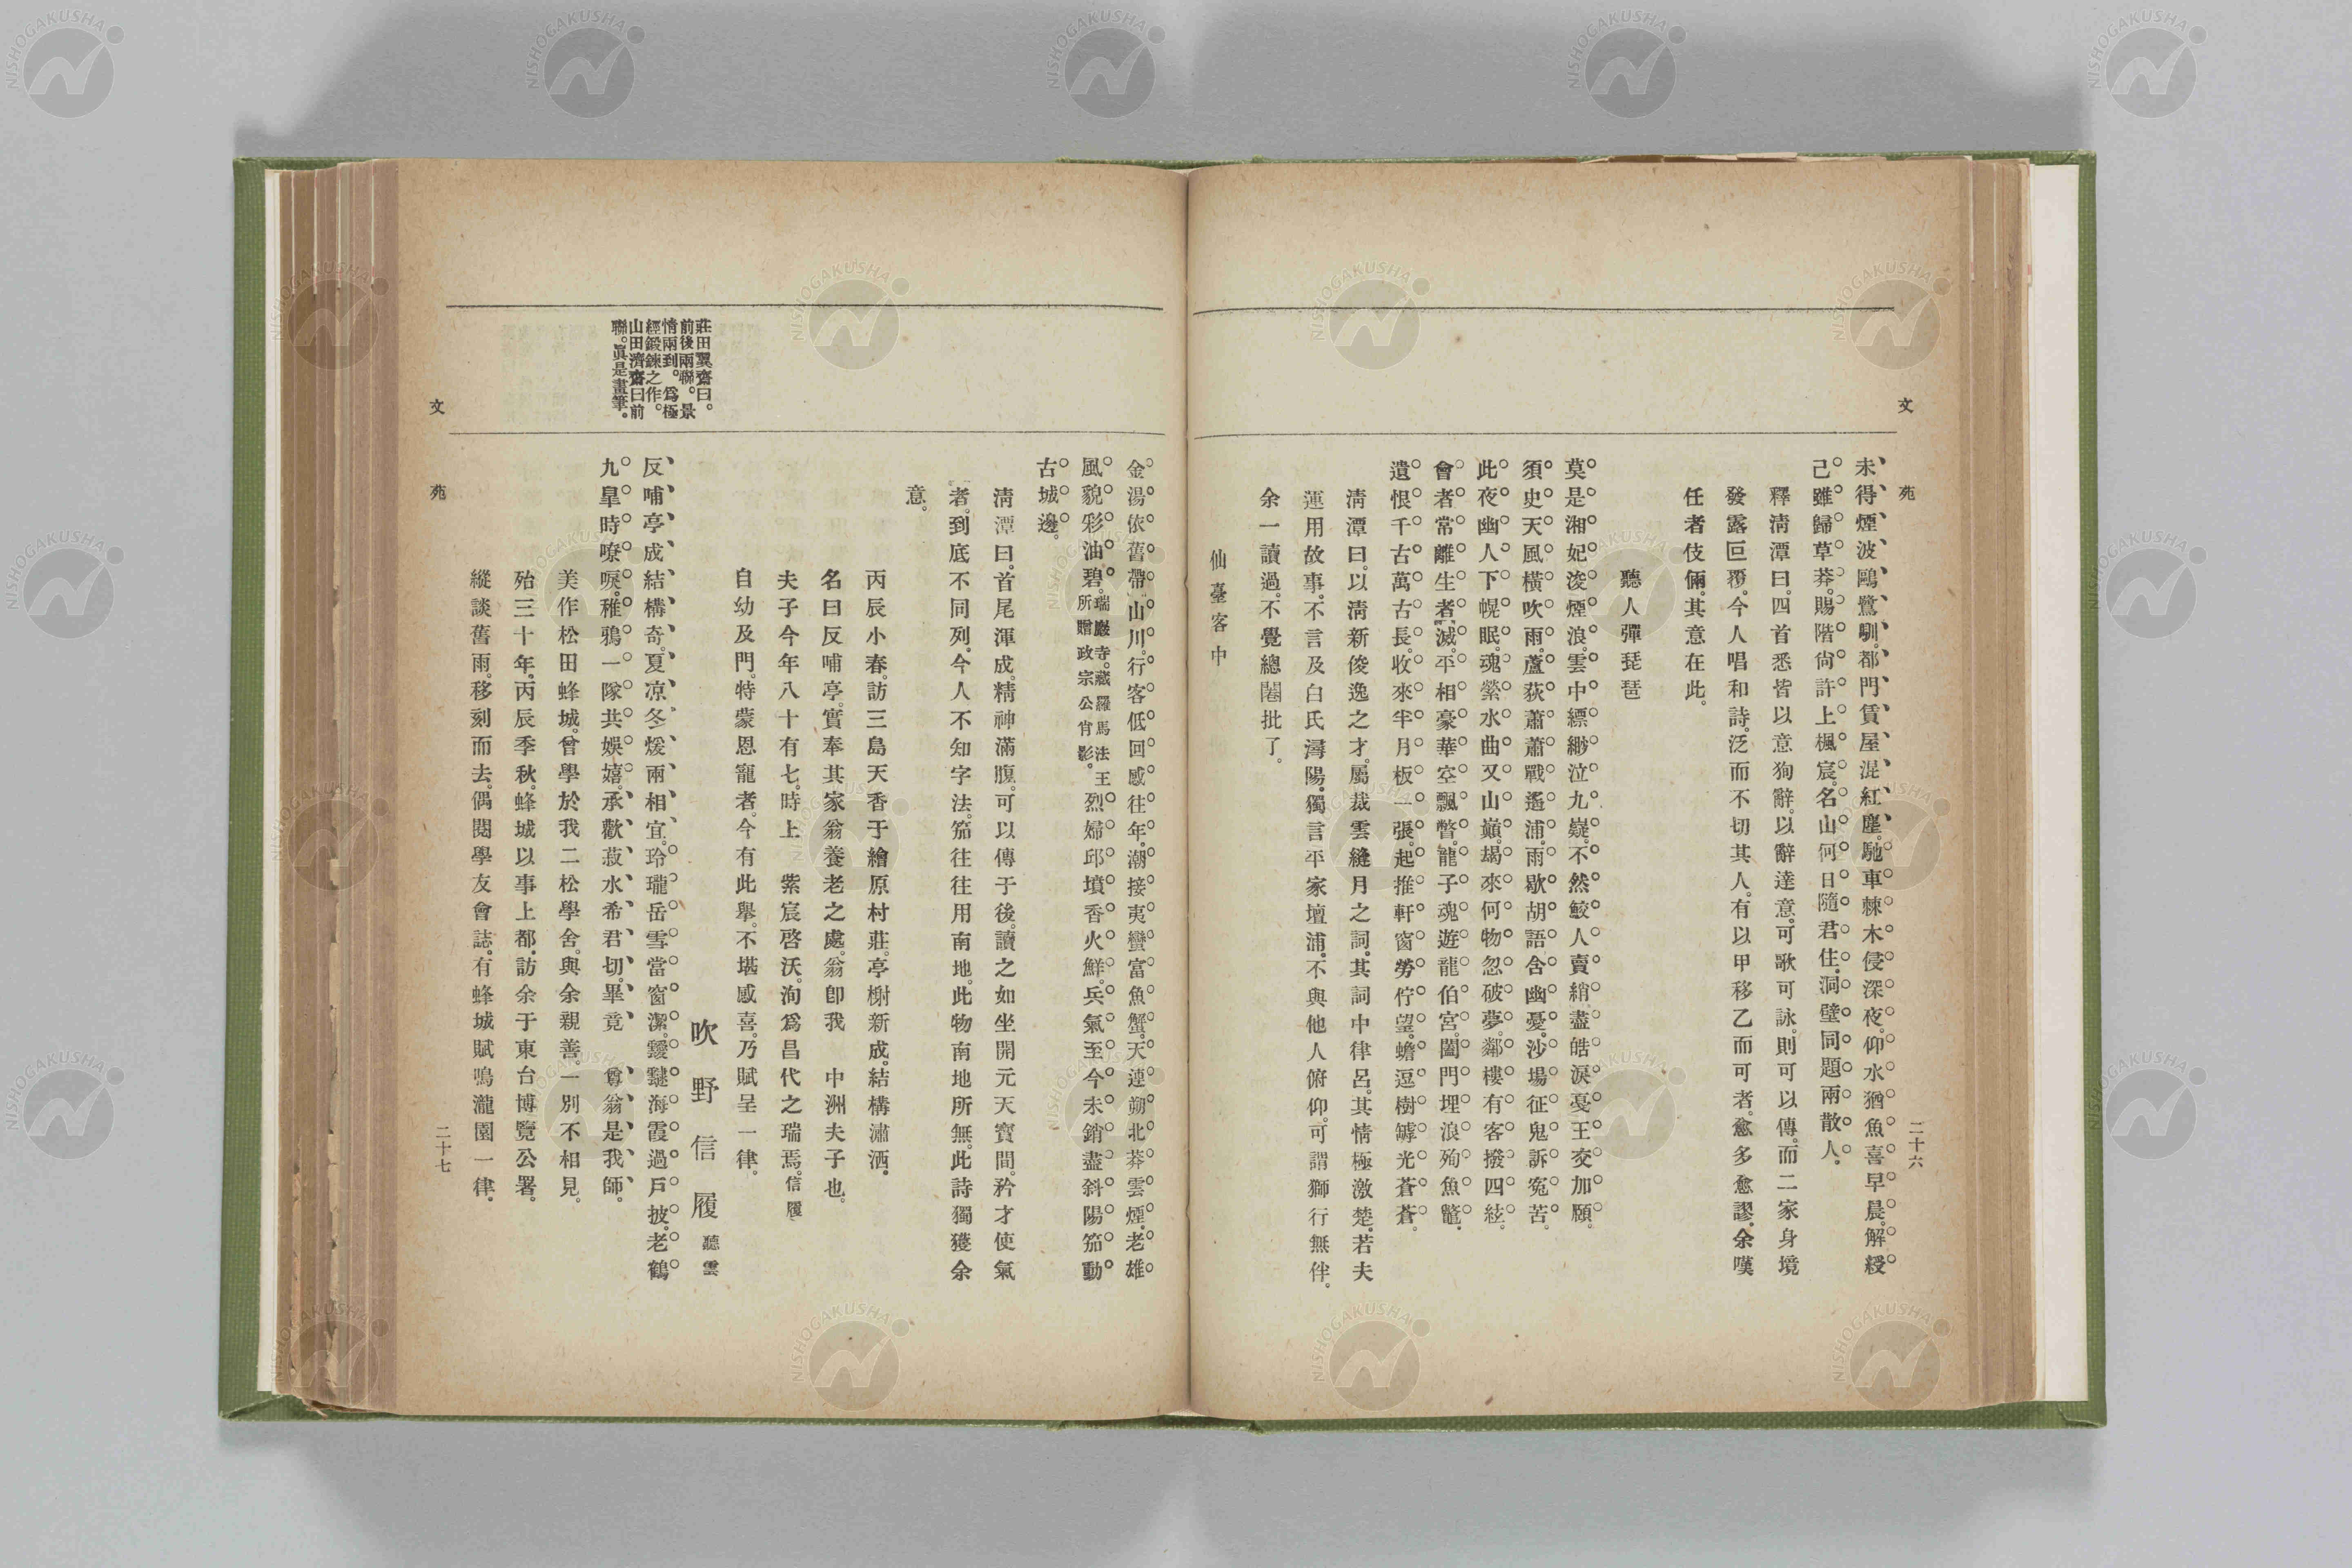 文苑
二十六
未得煙波鷗鷺馴。都門賃屋混紅塵。馳車棘木侵深夜。仰水猶魚喜早晨。解綬
己雖歸草莽。賜階尙許上楓宸。名山何日隨君住。洞壁同題兩散人。
釋淸潭曰。四首悉皆以意狥辭。以辭達意。可歌可詠。則可以傳。而二家身境
發露叵覆。今人唱和詩。泛而不切其人。有以甲移乙而可者。愈多愈謬。余嘆
任者伎倆。其意在此。
聽人彈琵琶
莫是湘妃浚煙浪。雲中縹緲泣九嶷。不然鮫人賣綃盡。皓淚憂王交加願。
須史天風橫吹雨。蘆荻蕭蕭戰遙浦。雨歇胡語含幽憂。沙場征鬼訴寃苦。
此夜幽人下幌眠。魂縈水曲又山巓。朅來何物忽破夢。鄰樓有客撥四絃。
會者常離生者滅。平相豪華空飄瞥。龍子魂遊龍伯宮。閶門埋浪殉魚鼈。
遺恨千古萬古長。收來半月板一張。起推軒窗勞佇望。蟾逗樹罅光蒼蒼。
淸潭曰。以淸新俊逸之才。屬裁雲縫月之詞。其詞中律呂。其情極激楚。若夫
運用故事。不言及白氏潯陽。獨言平家壇浦。不與他人俯仰。可謂獅行無伴。
余一讀過。不覺總闇批了。
仙臺客中
金湯依舊帶山川。行客低回感往年。潮接夷蠻富魚蟹。天連朔北莽雲煙。老雄
風貌彩油碧。瑞巖寺。藏羅馬法王所贈政宗公肖影。烈婦邱墳香火鮮。兵氣至今未銷盡。斜陽笳動
古城邊。
淸潭曰。首尾渾成。精神滿腹。可以傳于後。讀之如坐開元天寶間。矜才使氣
者。到底不同列。今人不知字法。笳往往用南地。此物南地所無。此詩獨獲余
意。
丙辰小春。訪三島天香于繪原村莊。亭榭新成。結構瀟洒。
名曰反哺亭。實奉其家翁養老之處。翁卽我 中洲夫子也。
夫子今年八十有七。時上 紫宸啓沃。洵爲昌代之瑞焉。信履
自幼及門。特蒙恩寵者。今有此擧。不堪感喜。乃賦呈一律。
吹野信履 聽雲
莊田翼齋曰。
前後兩聯。景
情兩到。爲極
經鍛鍊之作。
山田濟齋曰前
聯。眞是畫筆。
反哺亭成結構奇。夏凉冬煖兩相宜。玲瓏岳雪當窗潔。靉靆海霞過戶披。老鶴
九皐時嘹唳。稚鴉一隊共娛嬉。承歡菽水希君切。畢竟 尊翁是我師。
美作松田蜂城。曾學於我二松學舍。與余親善。一別不相見。
殆三十年。丙辰季秋。蜂城以事上都。訪余于東台博覽公署。
縱談舊雨。移刻而去。偶閱學友會誌。有蜂城賦鳴瀧園一律。
文苑
二十七
NISHOGAKUSHA